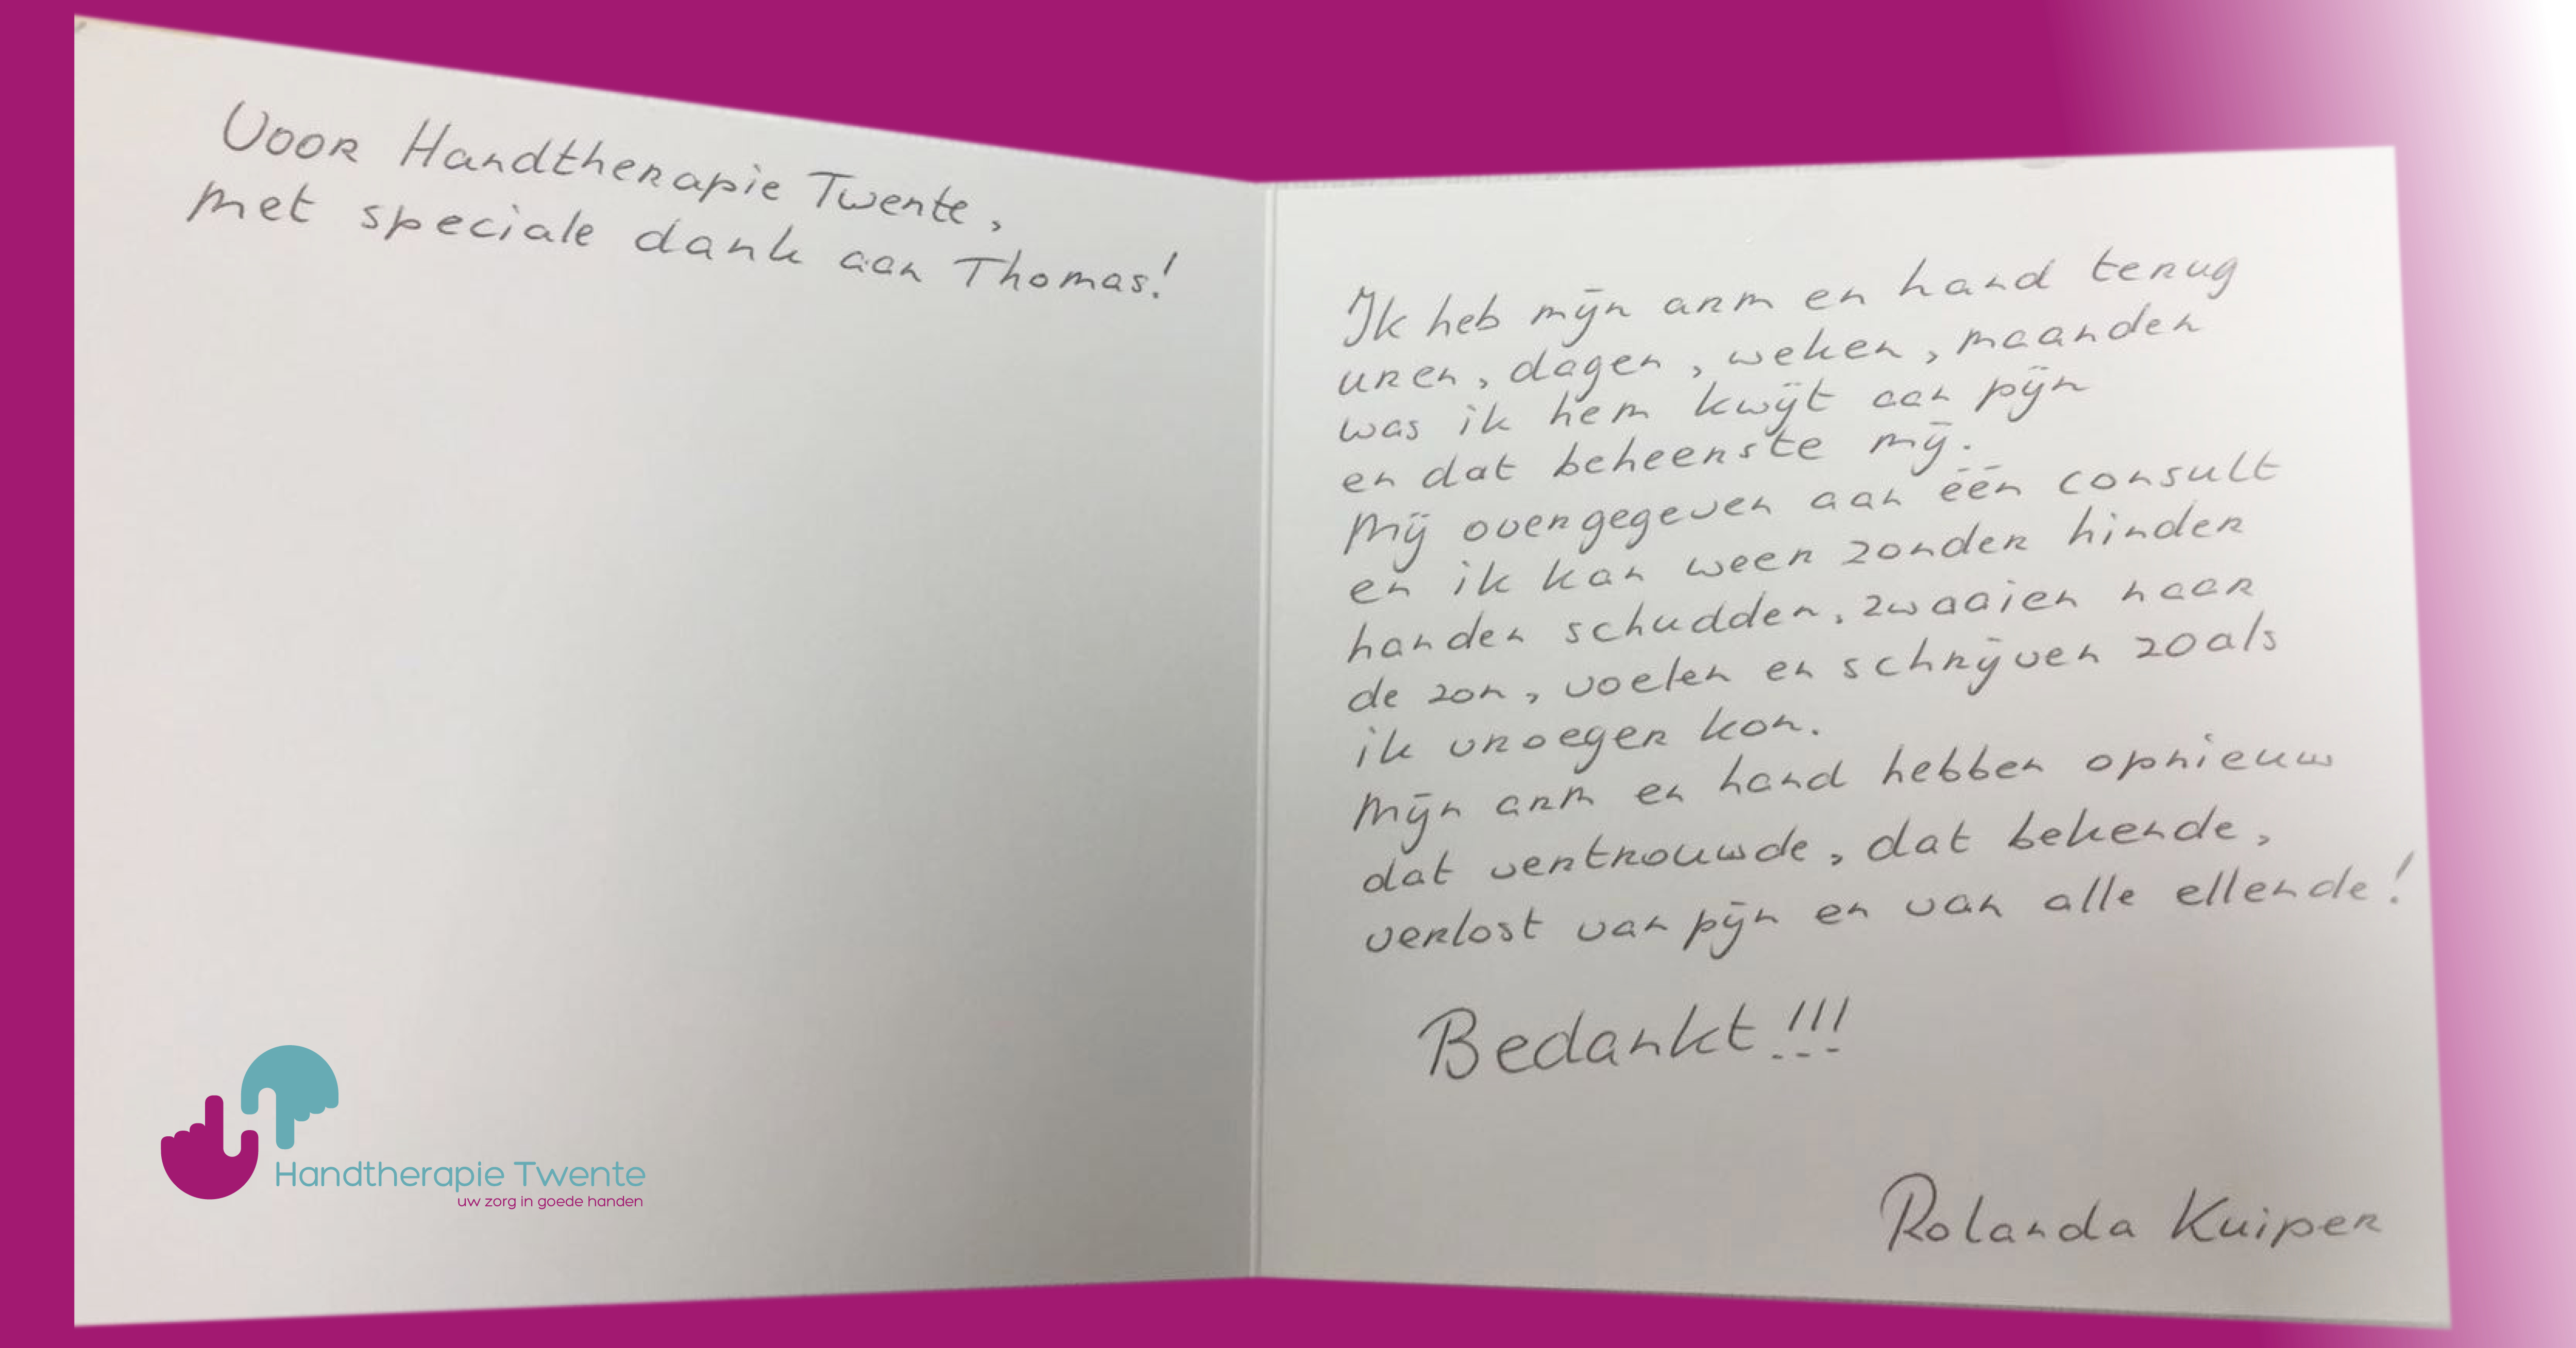 Voor Handtherapie Twente,
met speciale dank aan Thomas!
Ik heb mijn arm en hand terug
uren, dagen, weken, maanden
was ik hem kwijt aan pijn
en dat beheerste mij.
Mij overgegeven aan één consult
en ik kan weer zonder hinder
handen schudden, zwaaien naar
de zon, voelen en schrijven zoals
ik vroeger kon.
Mijn arm en hand hebben opnieuw
dat vertrouwde, dat bekende,
verlost van pijn en van alle ellende!
Bedankt!!!
Rolanda Kuiper
Handtherapie Twente
uw zorg in goede handen